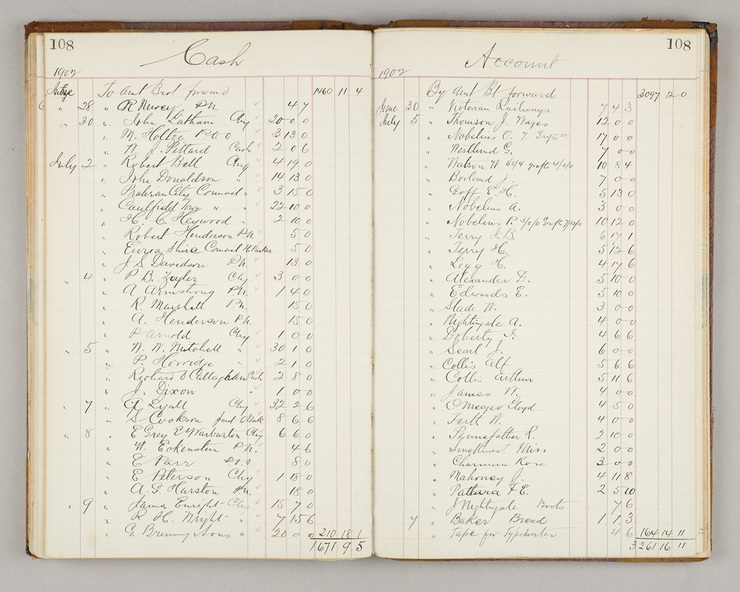 108
Cash
1902
To Amt Brot forward 1460 11 4
" 28 " R. Murey P.N. 4 7
" 30 " John Latham Chq 20 0 0
" M. Holtze P.O.O 3 13 0
" W. J. Pittard Cash 2 0 6
July 2 " Robert Bell Chq 4 19 0
" John Donaldson " 14 13 0
" Prahran City Council " 3 15 0
" Caulfield Town " " 22 10 0
" H. C. Heywood " 2 10 0
" Robert Henderson P.N. 5 0
" Euroa Shire Council 5 0
" J. S. Davidson P.N. 13 0
" 4 " P. B. Chq 3 0 0
" A Armstrong P.N. 1 4 0
" R. Marshall P.N. 15 0
" A. Henderson P.N. 15 0
" P Arnold Chq 1 0 0
" 5 " W. W. Mitchell " 30 1 0
" P. Horridge " 2 1 0
" Richard 2 8 0
" J. Dixon 1 0 0
" 7 " A Lyall Chq 32 2 6
" S Cookson 8 6 6
" 8 " E Grey E Warburton Chq 6 6 0
" W. Eckenstein P.N. 4 6
" E Parr P.O.O 8 0
" E Peterson Chq 1 18 0
" A. G. Harston P.N. 18 0
" 9 " James Enright Chq 15 7 0
" R. H. Wright " 7 15 6
" G. Brunning &amp; Sons " 20 0 0 210 18 1
1671 9 5
Account
108
1902
By Amt Bt forward 3097 2 0
June 30 " Victorian Railways 7 4 3
July 5 " Thomson J. Wages 12 0 0
" Nobelius O. 17 0 0
" Westlund G. 7 0 0
" Watson W. 10 8 4
" Borland J. 7 0 0
" Goff E. H. 5 13 0
" Nobelius A. 3 0 0
" Nobelius P. 10 12 0
" Terry J. B. 6 17 1
" Terry H. 5 12 6
" Legg H. 4 17 6
" Alexander D. 5 10 0
" Edwards E. 5 10 0
" Slade W. 3 0 0
" Nightingale A. 4 0 0
" Doherty J. 4 6 6
" Searl J. 6 0 0
" Collis Alf 5 6 6
" Collis Arthur 5 11 6
" James W. 4 0 0
" Lloyd 4 5 0
" W. 4 0 0
" Pennefather R. 2 10 0
" Smethurst Miss 2 0 0
" Charman Rosa 3 0 0
" Mahoney J. 4 11 8
" E. 2 5 10
" J Nightingale Boots 7 6
7 " Baker Bread 1 1 3
" Tape for Typewriter 4 6 164 14 11
3261 16 11